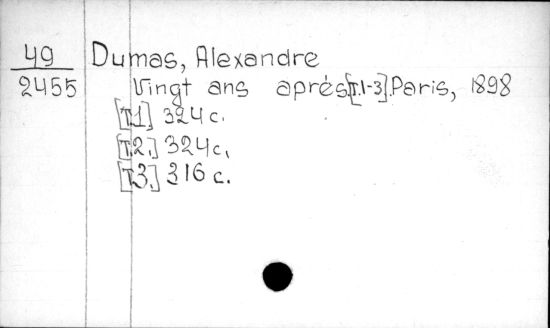 49
2455
Dumas, Alexandre
Vingt ans aprés [T.1-3]. Paris, 1898
[T.1] 324 c.
[T.2.] 324 c.
[T.3.] 316 c.